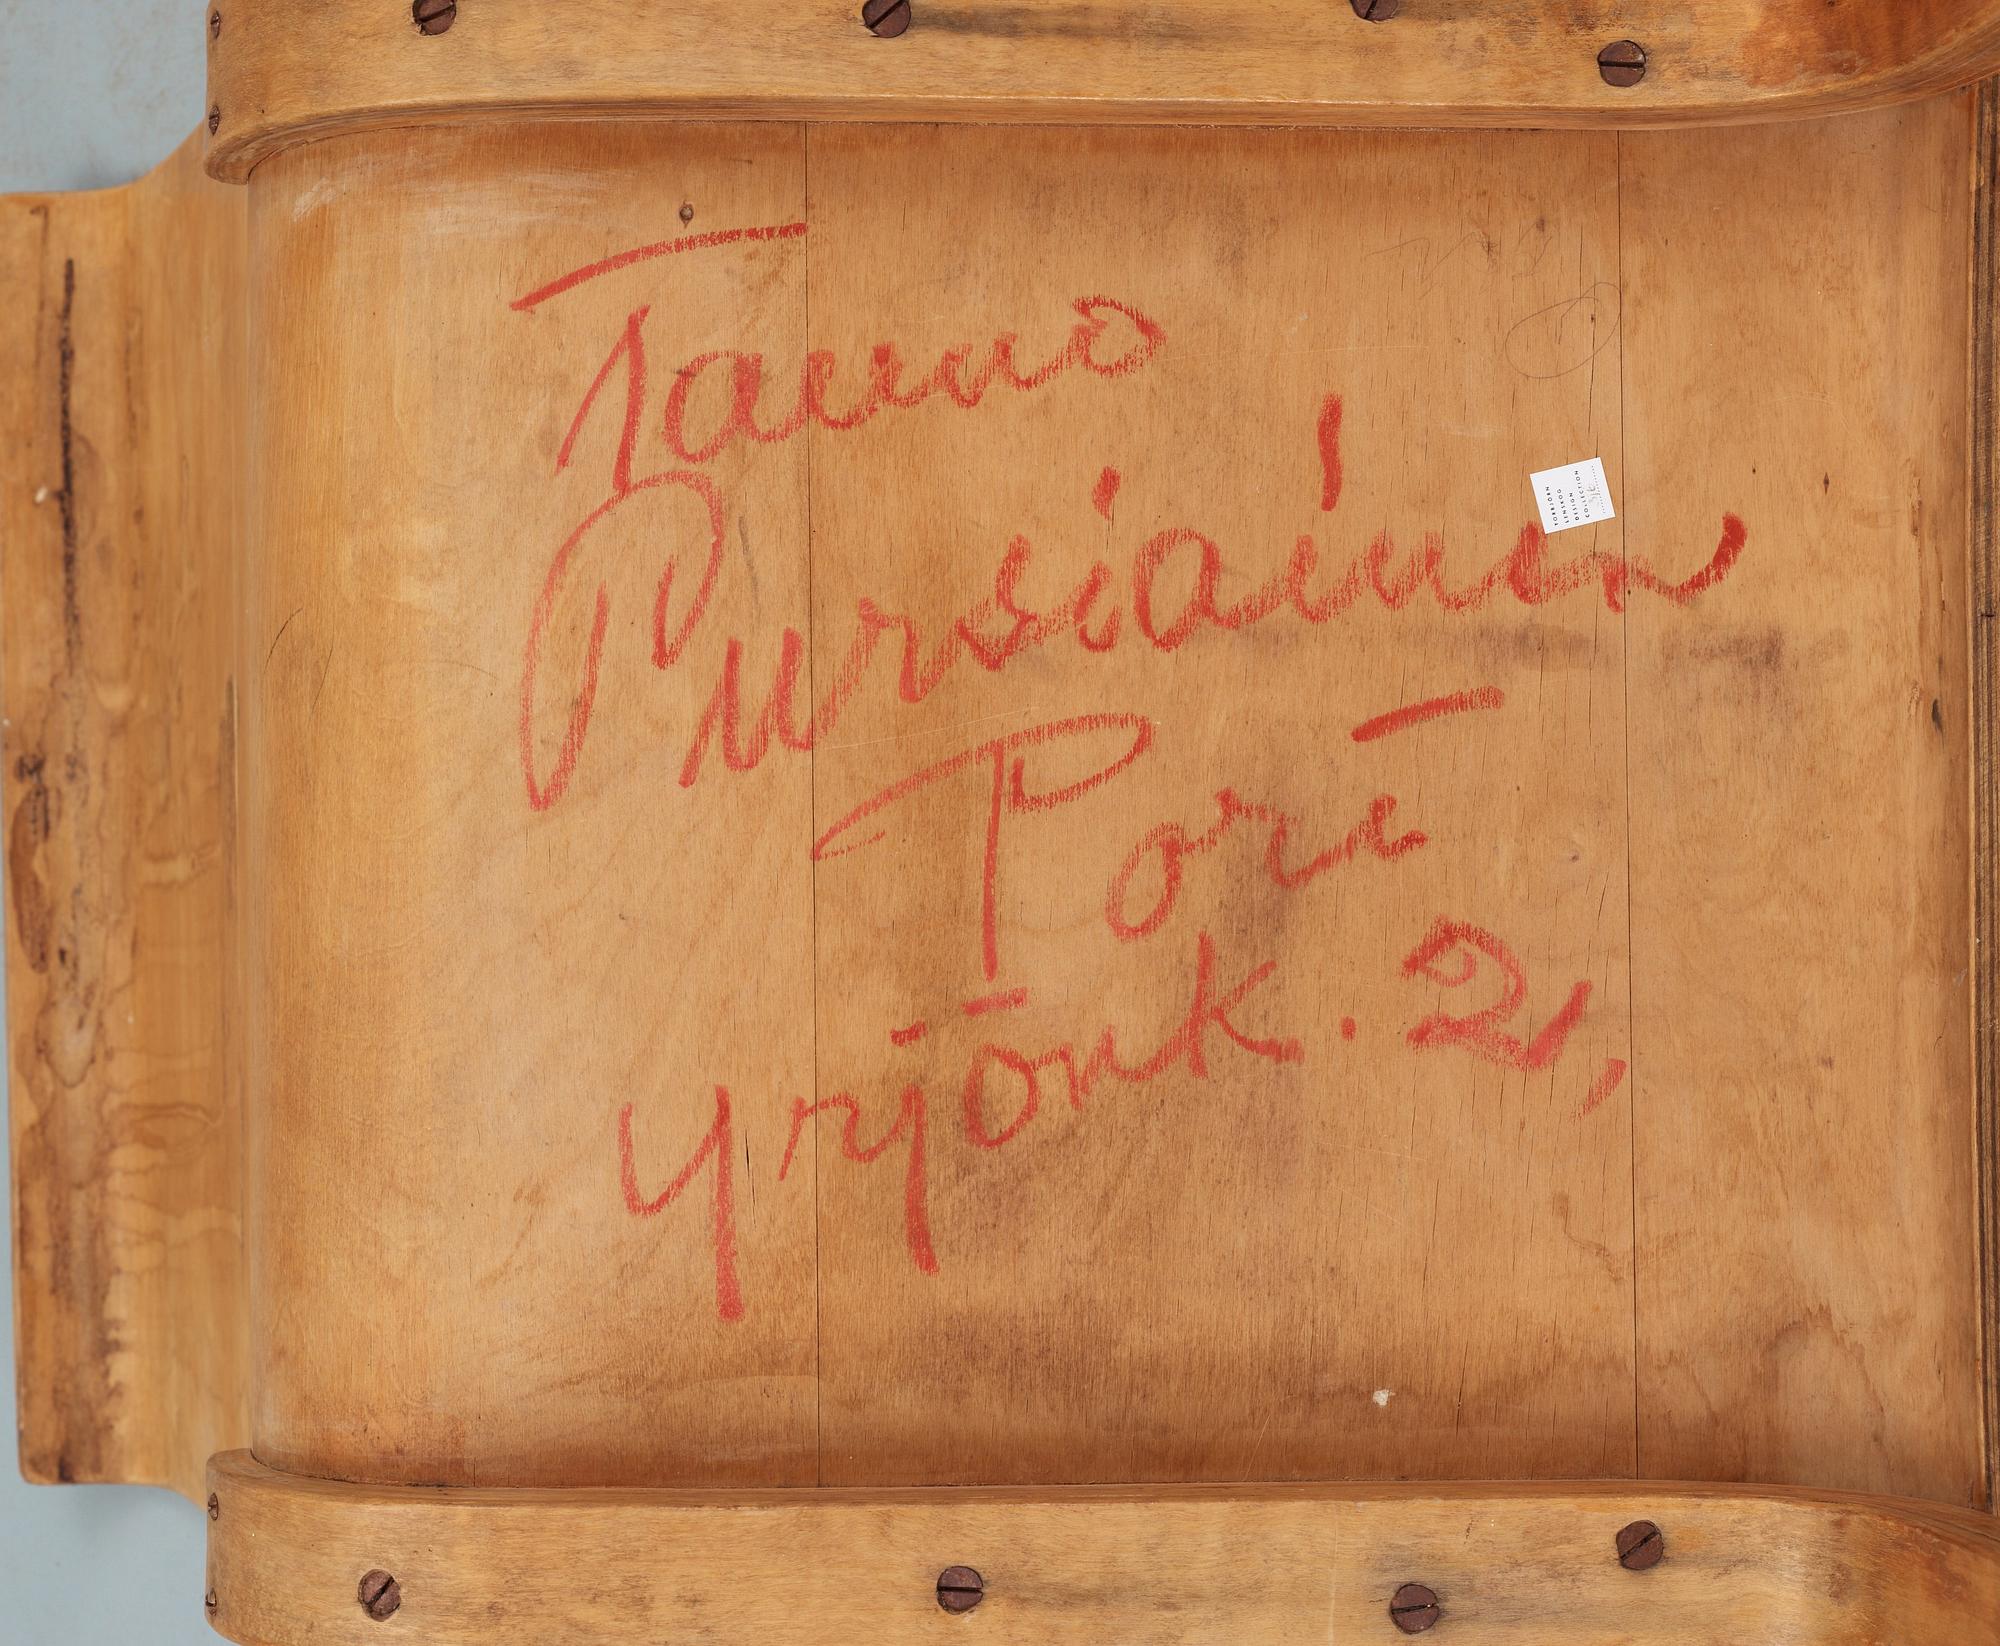 Tauno
Pursiainen
Pori
Yrjönk. 2,
TORBJÖRN
LENSKOG
DESIGN
COLLECTION